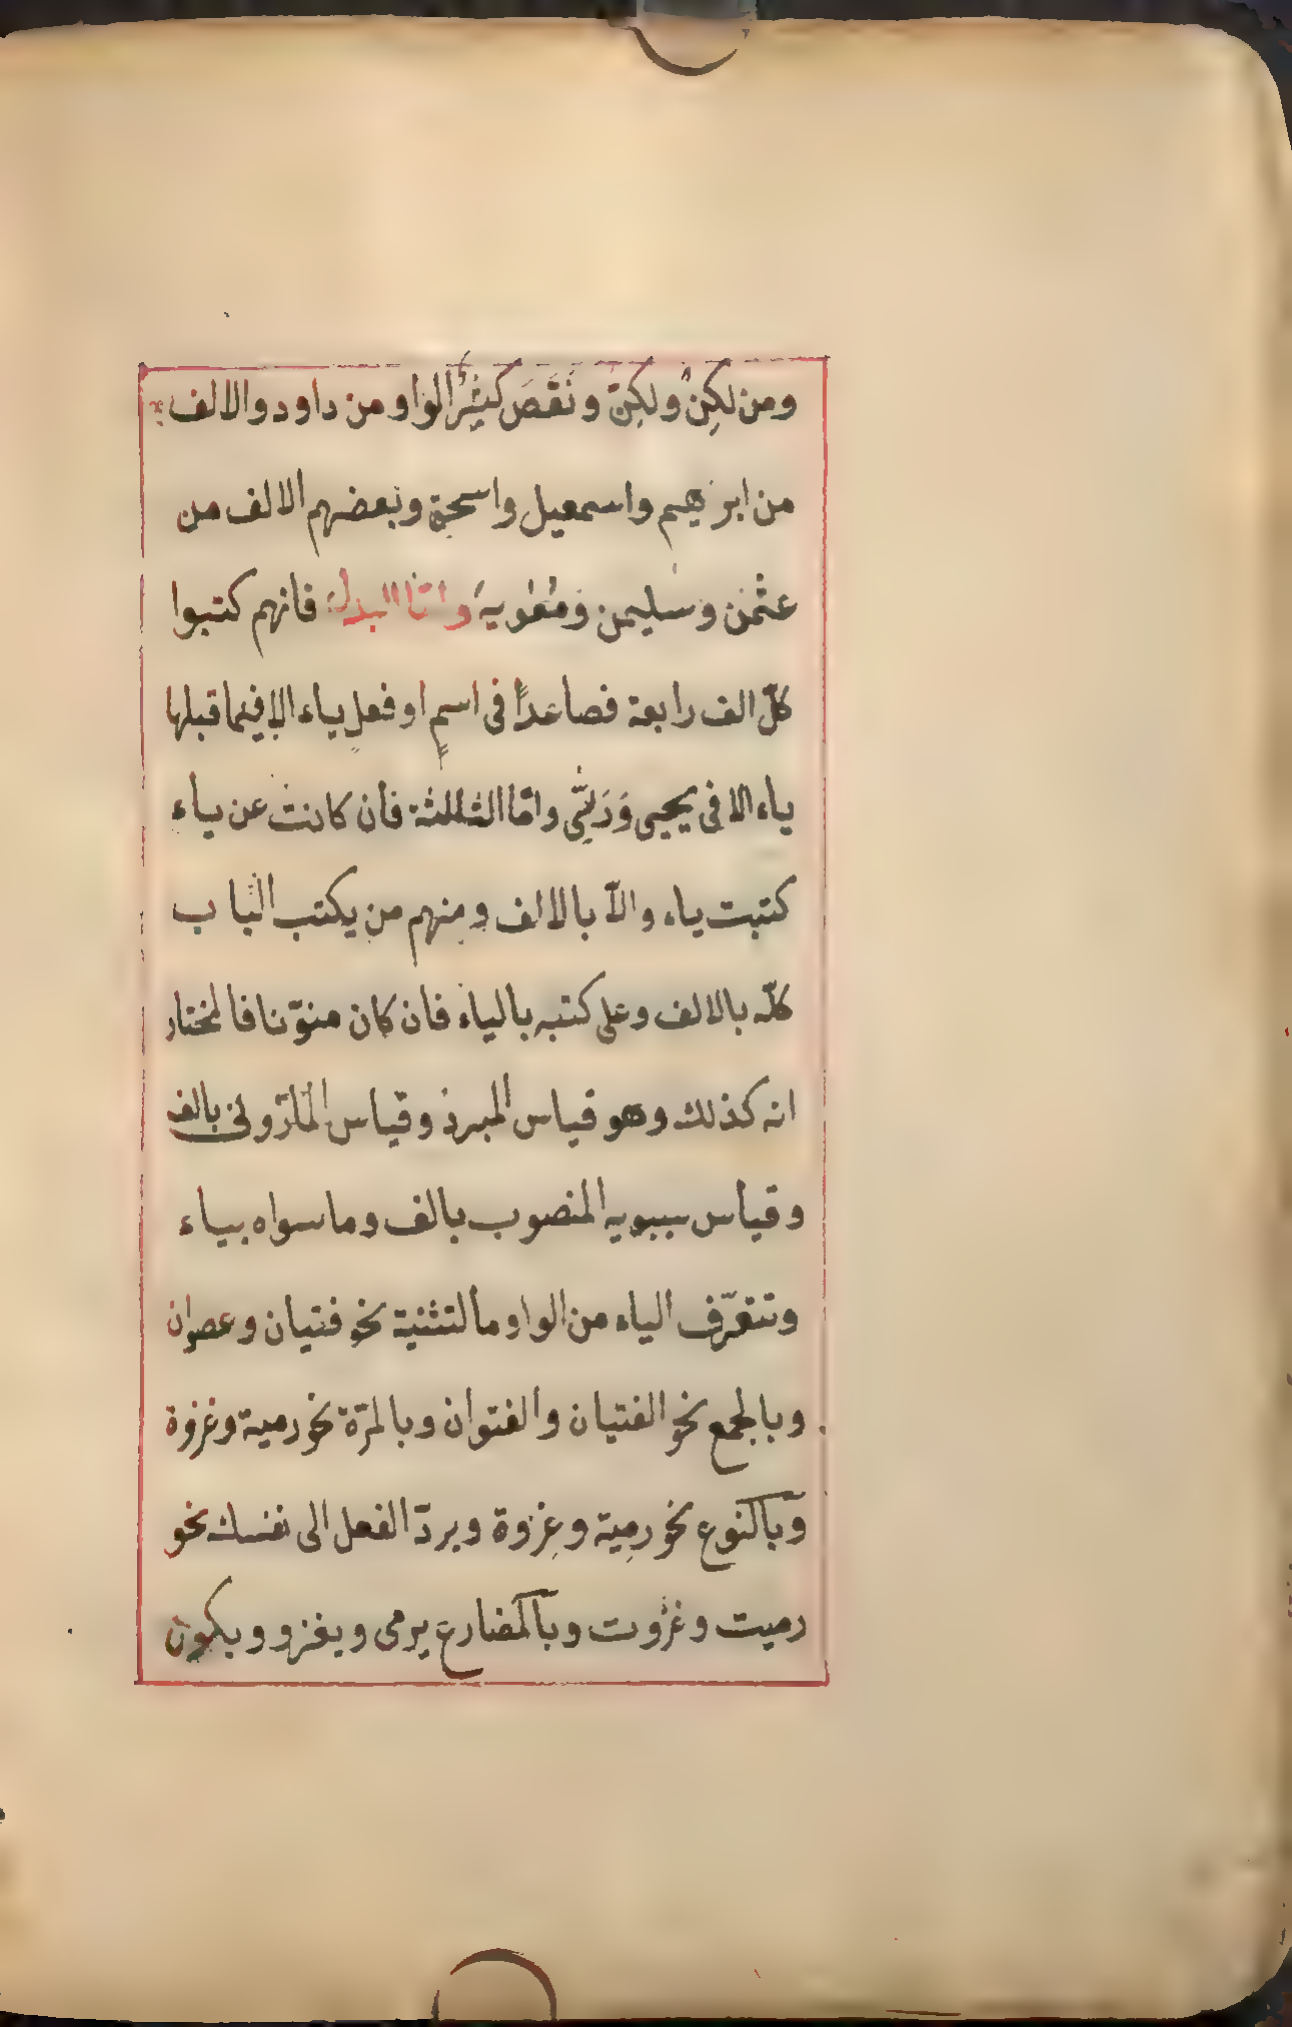 ومن لكِنْ ولكِنّ ونَقَصَ كَثِيْرٌ الواو من داود والالف
من ابرهيم واسمعيل واسحق وبعضهم الالف من
عثمن وسليمن ومعوية واما البدل فانهم كتبوا
كلّ الف رابعة فصاعداً فى اسمٍ او فعلٍ ياء الا فيما قبلها
ياء الا فى يحيى وَرَيّى وامّا الثالثة فان كانت عن ياء
كتبت ياء والاّ بالالف ومنهم من يكتب الباب
كلّه بالالف وعلى كتبه بالياء فان كان منوّنا فالمختار
انه كذلك وهو قياس المبرد وقياس المازونى بالف
وقياس سيبويه المنصوب بالف وما سواه بياء
وتتعرّف الياء من الواو مالتثنية نحو فتيان وعصوان
وبالجمع نحو الفتيان والفتوان وبالمرّة نحو رمية وغزوة
وبالنوع نحو رِمية وغِزوة وبردّ الفعل الى نفسك نحو
رميت وغزوت وبالمضارع يرمى ويغزو وبكون